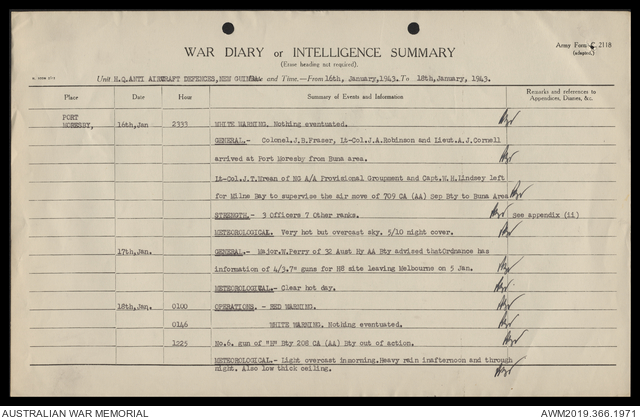 Army Form C. 2118
(adapted.)
WAR DIARY or INTELLIGENCE SUMMARY
(Erase heading not required).
Unit H.Q.ANTI AIRCRAFT DEFENCES,NEW GUINEA Date and Time.—From 16th, January,1943. To 18th,January, 1943.
Place Date Hour Summary of Events and Information Remarks and references to Appendices, Diaries, &c.
PORT MORESBY, 16th,Jan 2333 WHITE WARNING. Nothing eventuated.
GENERAL.- Colonel.J.B.Fraser, Lt-Col.J.A.Robinson and Lieut.A.J.Cornell
arrived at Port Moresby from Buna area.
Lt-Col.J.T.Mrean of NG A/A Provisional Groupment and Capt.H.H.Lindsey left
for Milne Bay to supervise the air move of 709 CA (AA) Sep Bty to Buna Area
STRENGTH.- 3 Officers 7 Other ranks. See appendix (ii)
METEOROLOGICAL. Very hot but overcast sky. 5/10 night cover.
17th,Jan. GENERAL.- Major.W.Perry of 32 Aust Hy AA Bty advised thatOrdnance has
information of 4/3.7" guns for H8 site leaving Melbourne on 5 Jan.
METEOROLOGICAL.- Clear hot day.
18th,Jan. 0100 OPERATIONS. - RED WARNING.
0146 WHITE WARNING. Nothing eventuated.
1225 No.6. gun of "E" Bty 208 CA (AA) Bty out of action.
METEOROLOGICAL.- Light overcast inmorning.Heavy rain inafternoon and through
night. Also low thick ceiling.
AUSTRALIAN WAR MEMORIAL AWM2019.366.1971